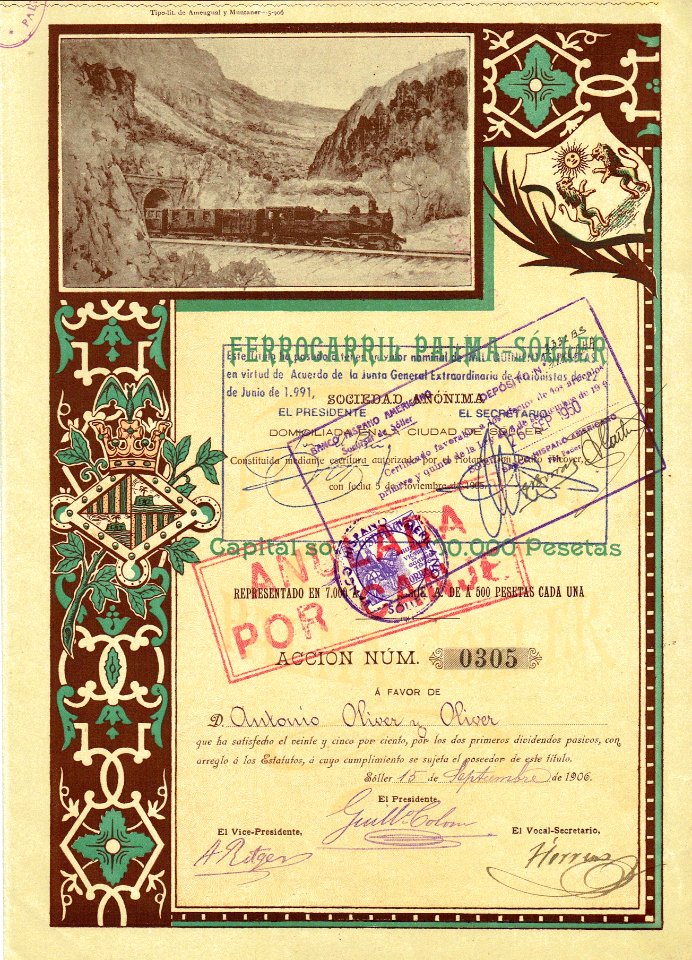 Tipo-lit. de Amengual y Muntaner—5-906
FERROCARRIL PALMA-SÓLLER
Este título ha pasado a tener un valor nominal de MIL QUINIENTAS PESETAS
en virtud de Acuerdo de la Junta General Extraordinaria de Accionistas de 22
de Junio de 1.991,
SOCIEDAD ANÓNIMA
EL PRESIDENTE
EL SECRETARIO
DOMICILIADA EN LA CIUDAD DE SÓLLER
BANCO HISPANO AMERICANO
Sucursal de Sóller
DEPÓSITO N.º
primero y quinto de la
SEP 1950
BANCO HISPANO-AMERICANO
Constituida mediante escritura autorizada por el Notario
Alcover,
con fecha 5 de Noviembre de 1905
Capital social 0.000 Pesetas
ANULADA
POR CANJE
REPRESENTADO EN 7.000
DE A 500 PESETAS CADA UNA
ACCIÓN NÚM. 0305
Á FAVOR DE
D. Antonio Oliver y Oliver
que ha satisfecho el veinte y cinco por ciento, por los dos primeros dividendos pasivos, con
arreglo á los Estatutos, á cuyo cumplimiento se sujeta el poseedor de este título.
Sóller 15 de Septiembre de 1906.
El Presidente,
Guill.º Colom
El Vice-Presidente,
El Vocal-Secretario,